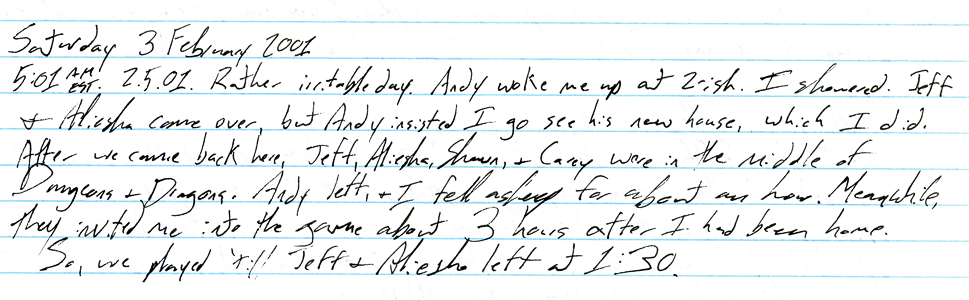 Saturday 3 February 2001
5:01 AM EST. 2.5.01. Rather irritable day. Andy woke me up at 2-ish. I showered. Jeff
+ Aliesha came over, but Andy insisted I go see his new house, which I did.
After we came back here, Jeff, Aliesha, Shawn, + Carey were in the middle of
Dungeons + Dragons. Andy left, + I fell asleep for about an hour. Meanwhile,
they invited me into the game about 3 hours after I had been home.
So, we played 'til Jeff + Aliesha left at 1:30.